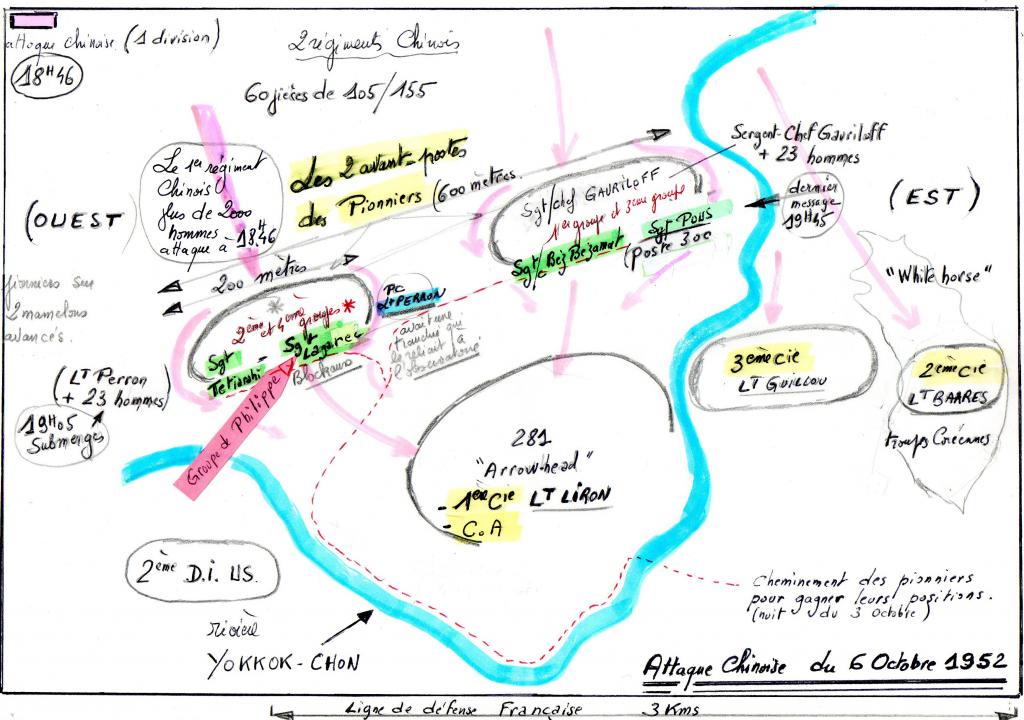 attaque chinoise (1 division)
18H46
2 régiments Chinois
60 pièces de 105/155
Le 1er régiment
Chinois
plus de 2000
hommes
attaque à 18H46
Les 2 avant-postes
des Pionniers (600 mètres.
(OUEST)
200 mètres
pionniers sur
2 mamelons
avancés.
Sergent-Chef Gavriloff
+ 23 hommes
Sgt/chef GAVRILOFF
1er groupe et 3ème groupe
Sgt/c Béz Bezamat
Sgt-Pous
(poste 300
dernier
message
19H45
(EST)
"White horse"
PC
Lt PERRON
avait une
tranchée qui
le reliait à
l'observatoire
2ème et 4ème groupes *
Sgt
Tetiarahi
- Sgt
Lazarec
Blockaus
Groupe de Philippe
(LT Perron
+ 23 hommes)
19H05
Submergés
3ème Cie
LT GUILLOU
2ème Cie
LT BAARES
troupes Coréennes
281
"Arrow-head"
- 1ère Cie LT LIRON
- C.A
2ème D.I. US.
rivière
YOKKOK-CHON
Cheminement des pionniers
pour gagner leurs positions.
(nuit du 3 Octobre)
Attaque Chinoise du 6 Octobre 1952
Ligne de défense Française 3 Kms